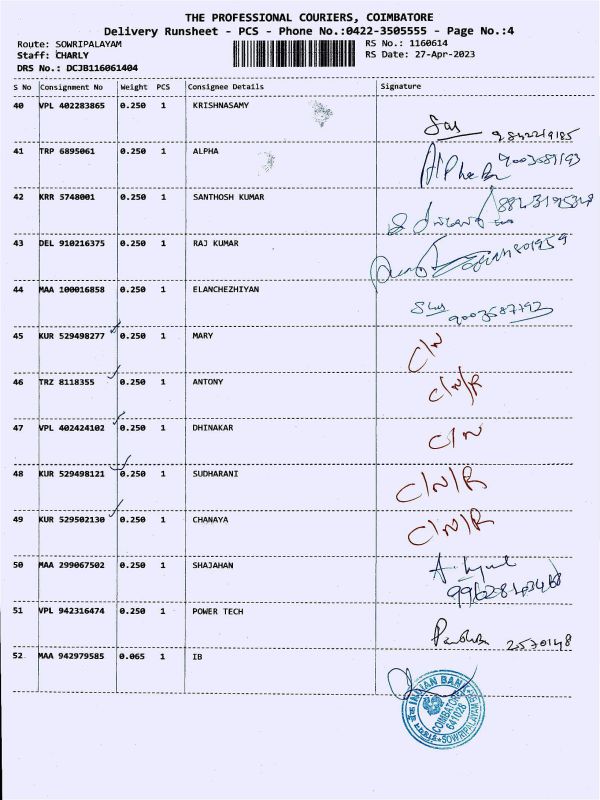 THE PROFESSIONAL COURIERS, COIMBATORE
Delivery Runsheet - PCS - Phone No.:0422-3505555 - Page No.:4
Route: SOWRIPALAYAM RS No.: 1160614
Staff: CHARLY RS Date: 27-Apr-2023
DRS No.: DCJB116061404
S No Consignment No Weight PCS Consignee Details Signature
40 VPL 402283865 0.250 1 KRISHNASAMY
9842219185
41 TRP 6895061 0.250 1 ALPHA
42 KRR 5748001 0.250 1 SANTHOSH KUMAR
43 DEL 910216375 0.250 1 RAJ KUMAR
44 MAA 100016858 0.250 1 ELANCHEZHIYAN
45 KUR 529498277 0.250 1 MARY C/N
46 TRZ 8118355 0.250 1 ANTONY C/N/R
47 VPL 402424102 0.250 1 DHINAKAR C/N
48 KUR 529498121 0.250 1 SUDHARANI C/N/R
49 KUR 529502130 0.250 1 CHANAYA C/N/R
50 MAA 299067502 0.250 1 SHAJAHAN
51 VPL 942316474 0.250 1 POWER TECH
2570148
52 MAA 942979585 0.065 1 IB
INDIAN BANK
COIMBATORE
641028
SOWRIPALAYAM